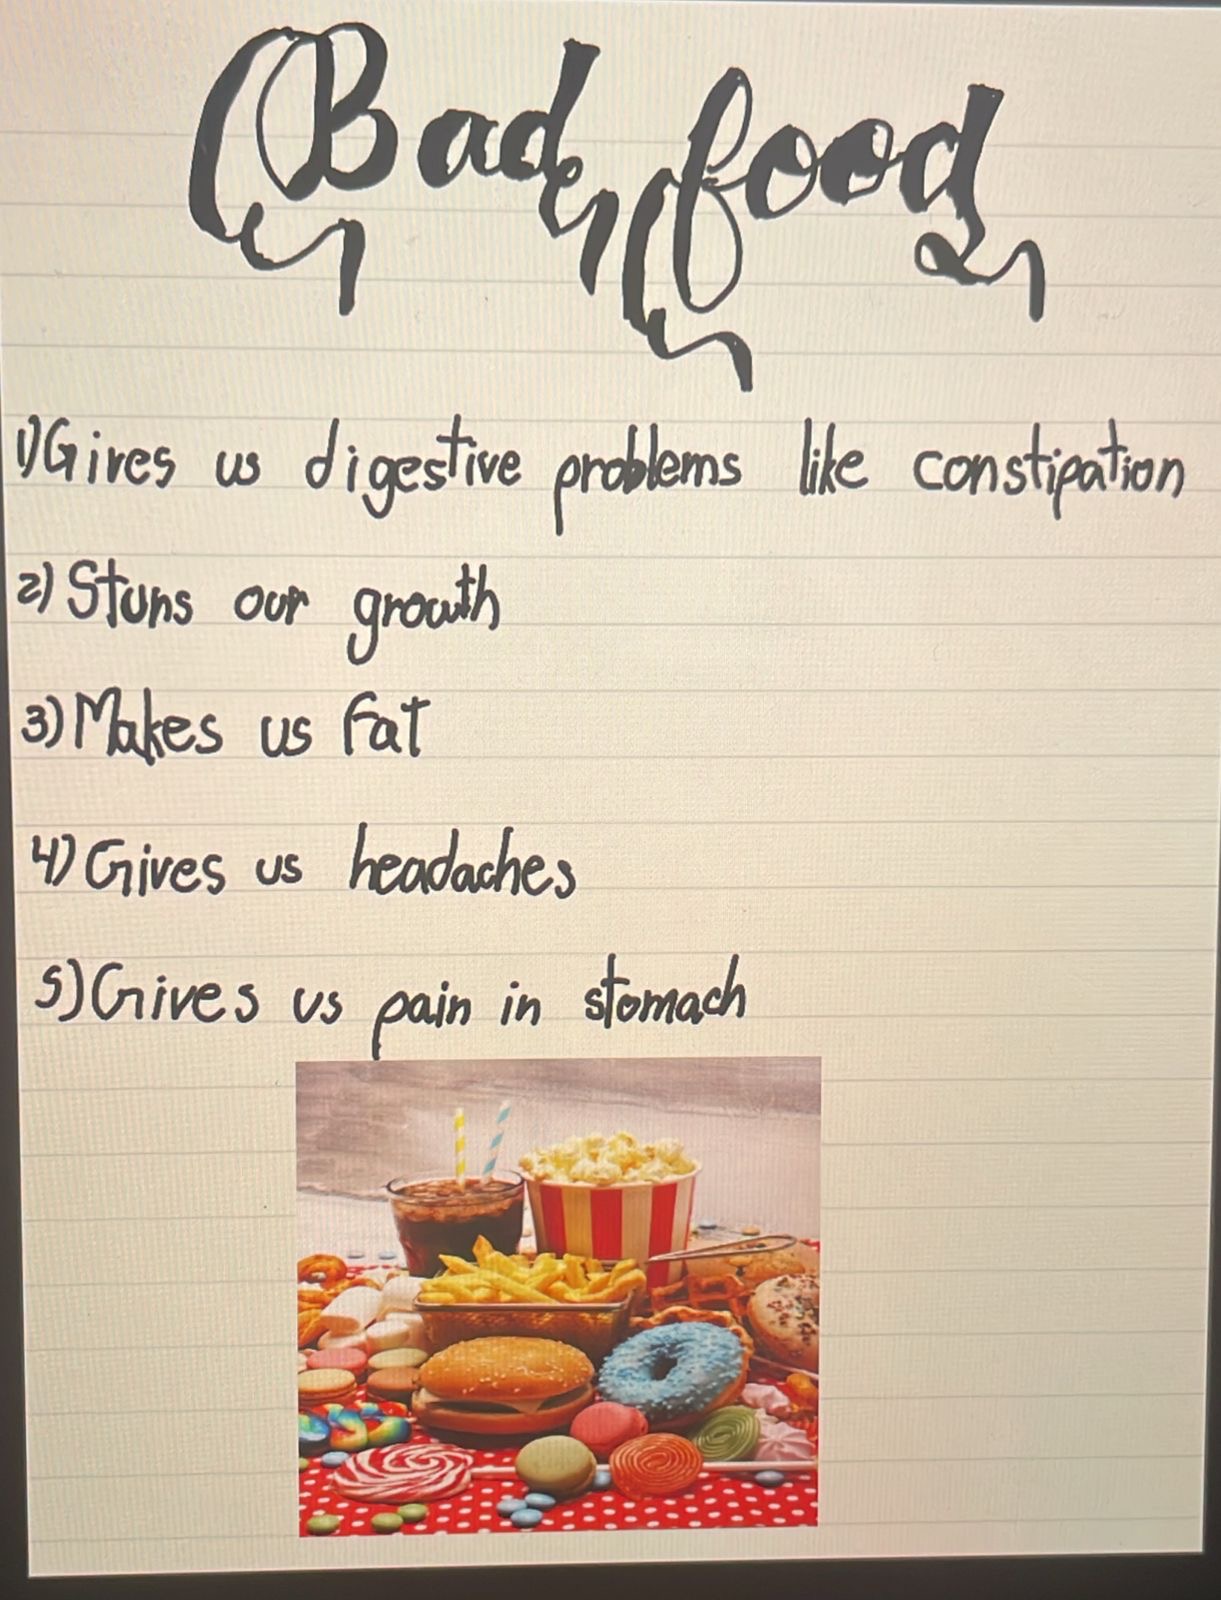 Bad food
1) Gives us digestive problems like constipation
2) Stuns our growth
3) Makes us fat
4) Gives us headaches
5) Gives us pain in stomach